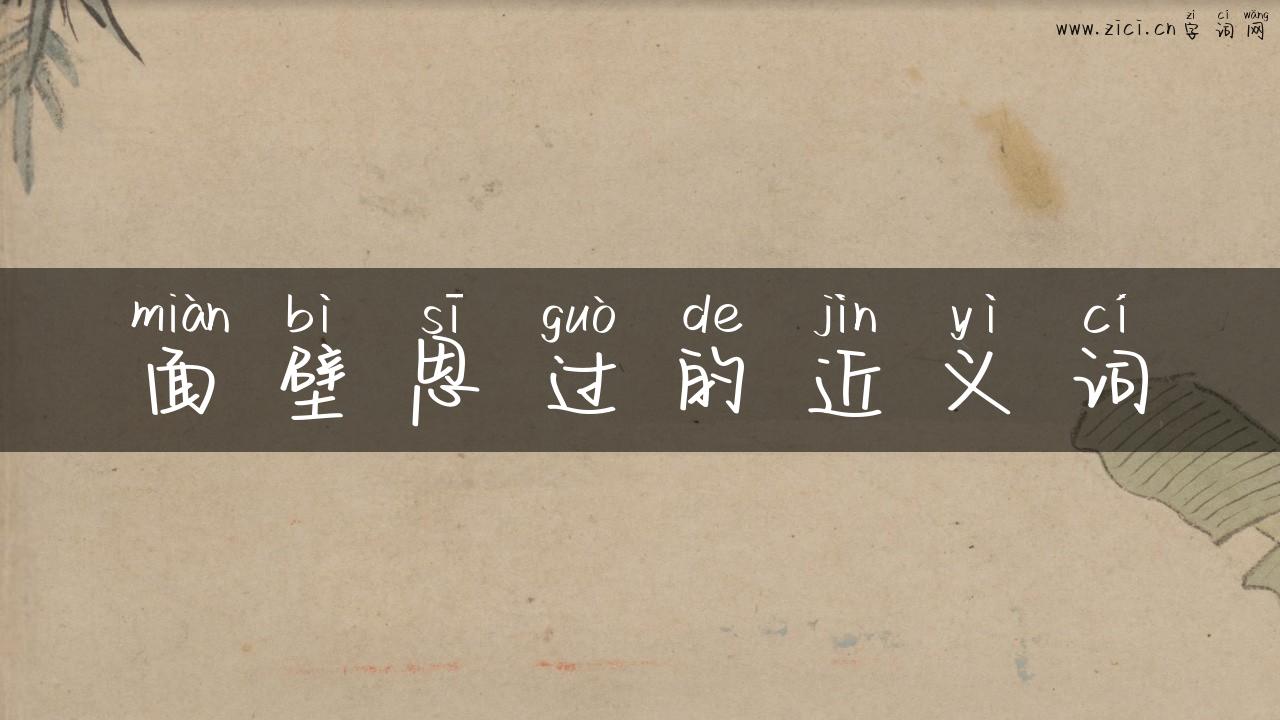 zì cí wǎng
www.zici.cn 字词网
miàn bì sī guò de jìn yì cí
面壁思过的近义词